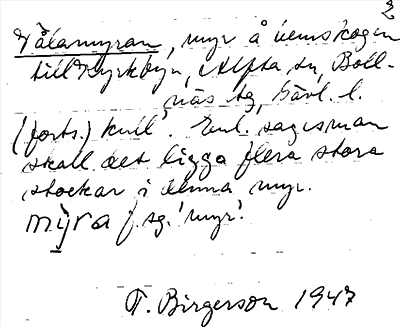 2
Vålamyran, myr å hemskogen
till Kyrkbyn, Alfta sn, Boll-
näs tg, Gävl. l.
(forts.) kull'. Enl. sagesman
skall det ligga flera stora
stockar i denna myr.
myra f. sg. 'myr'.
T. Birgerson 1947